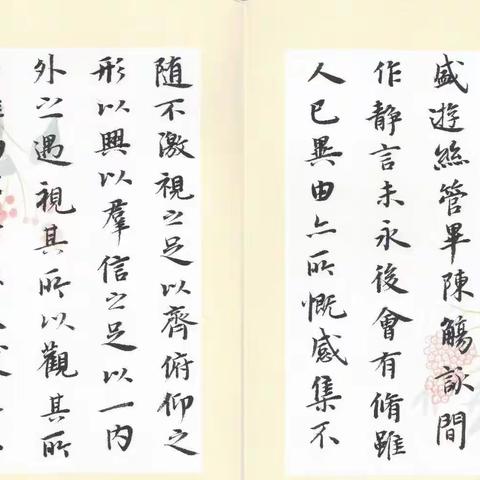 盛遊絲管畢陳觴詠間
作静言未永後會有脩雖
人已異由亦所慨感集不
随不激視之足以齊俯仰之
形以興以羣信之足以一内
外之遇視其所以觀其所